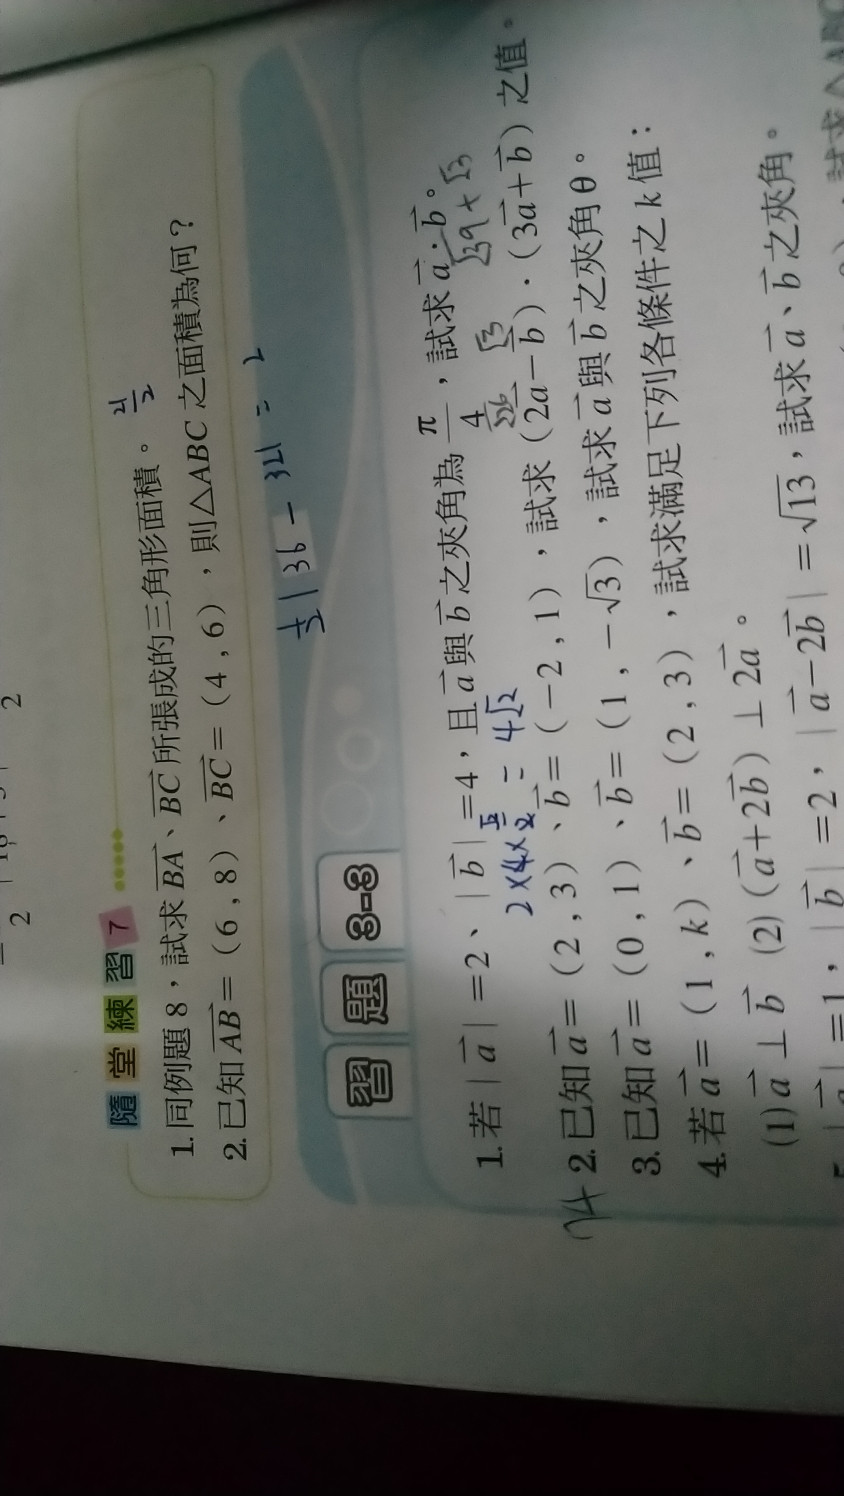 2
2
隨堂練習 7
1. 同例題 8，試求 BA、BC 所張成的三角形面積。 21/2
2. 已知 AB=（6，8）、BC=（4，6），則△ABC 之面積為何？
1/2 | 36 - 32 | = 2
習題 3-3
1. 若 | a | =2、| b | =4，且 a 與 b 之夾角為 π/4，試求 a · b。
2×4×√2/2 = 4√2
√39 + √3
2. 已知 a=（2，3）、b=（-2，1），試求（2a-b）·（3a+b）之值。
3. 已知 a=（0，1）、b=（1，-√3），試求 a 與 b 之夾角 θ。
4. 若 a=（1，k）、b=（2，3），試求滿足下列各條件之 k 值：
(1) a ⊥ b (2)(a+2b) ⊥ 2a。
| =1，| b | =2，| a-2b | =√13，試求 a、b 之夾角。
試求△ABC